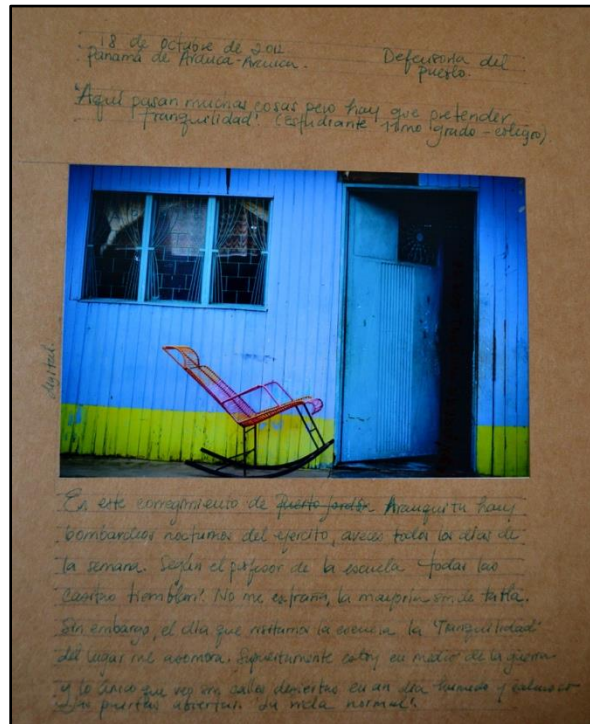 18 de octubre de 2011
Panamá de Arauca-Arauca.
Defensoría del
pueblo.
"Aquí pasan muchas cosas pero hay que pretender
tranquilidad". (Estudiante 11mo grado - colegio).
digital.
En este corregimiento de Puerto Jordán Aranquita hay
bombardeos nocturnos del ejercito, aveces todos los días de
la semana. Según el profesor de la escuela "todas las
casitas tiemblan". No me extraña, la mayoría son de tabla.
Sin embargo, el día que visitamos la escuela la "Tranquilidad"
del lugar me asombra. Supuestamente estoy en medio de la guerra
y lo único que veo son calles desiertas en un día húmedo y caluroso
puertas abiertas. "Su vida normal".